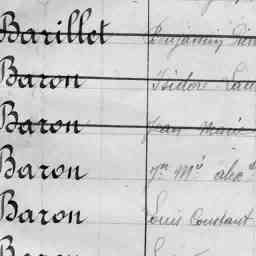 Barillet Benjamin
Baron Isidore
Baron Jean Marie
Baron Jn Mie alexd
Baron Louis Constant
Baron